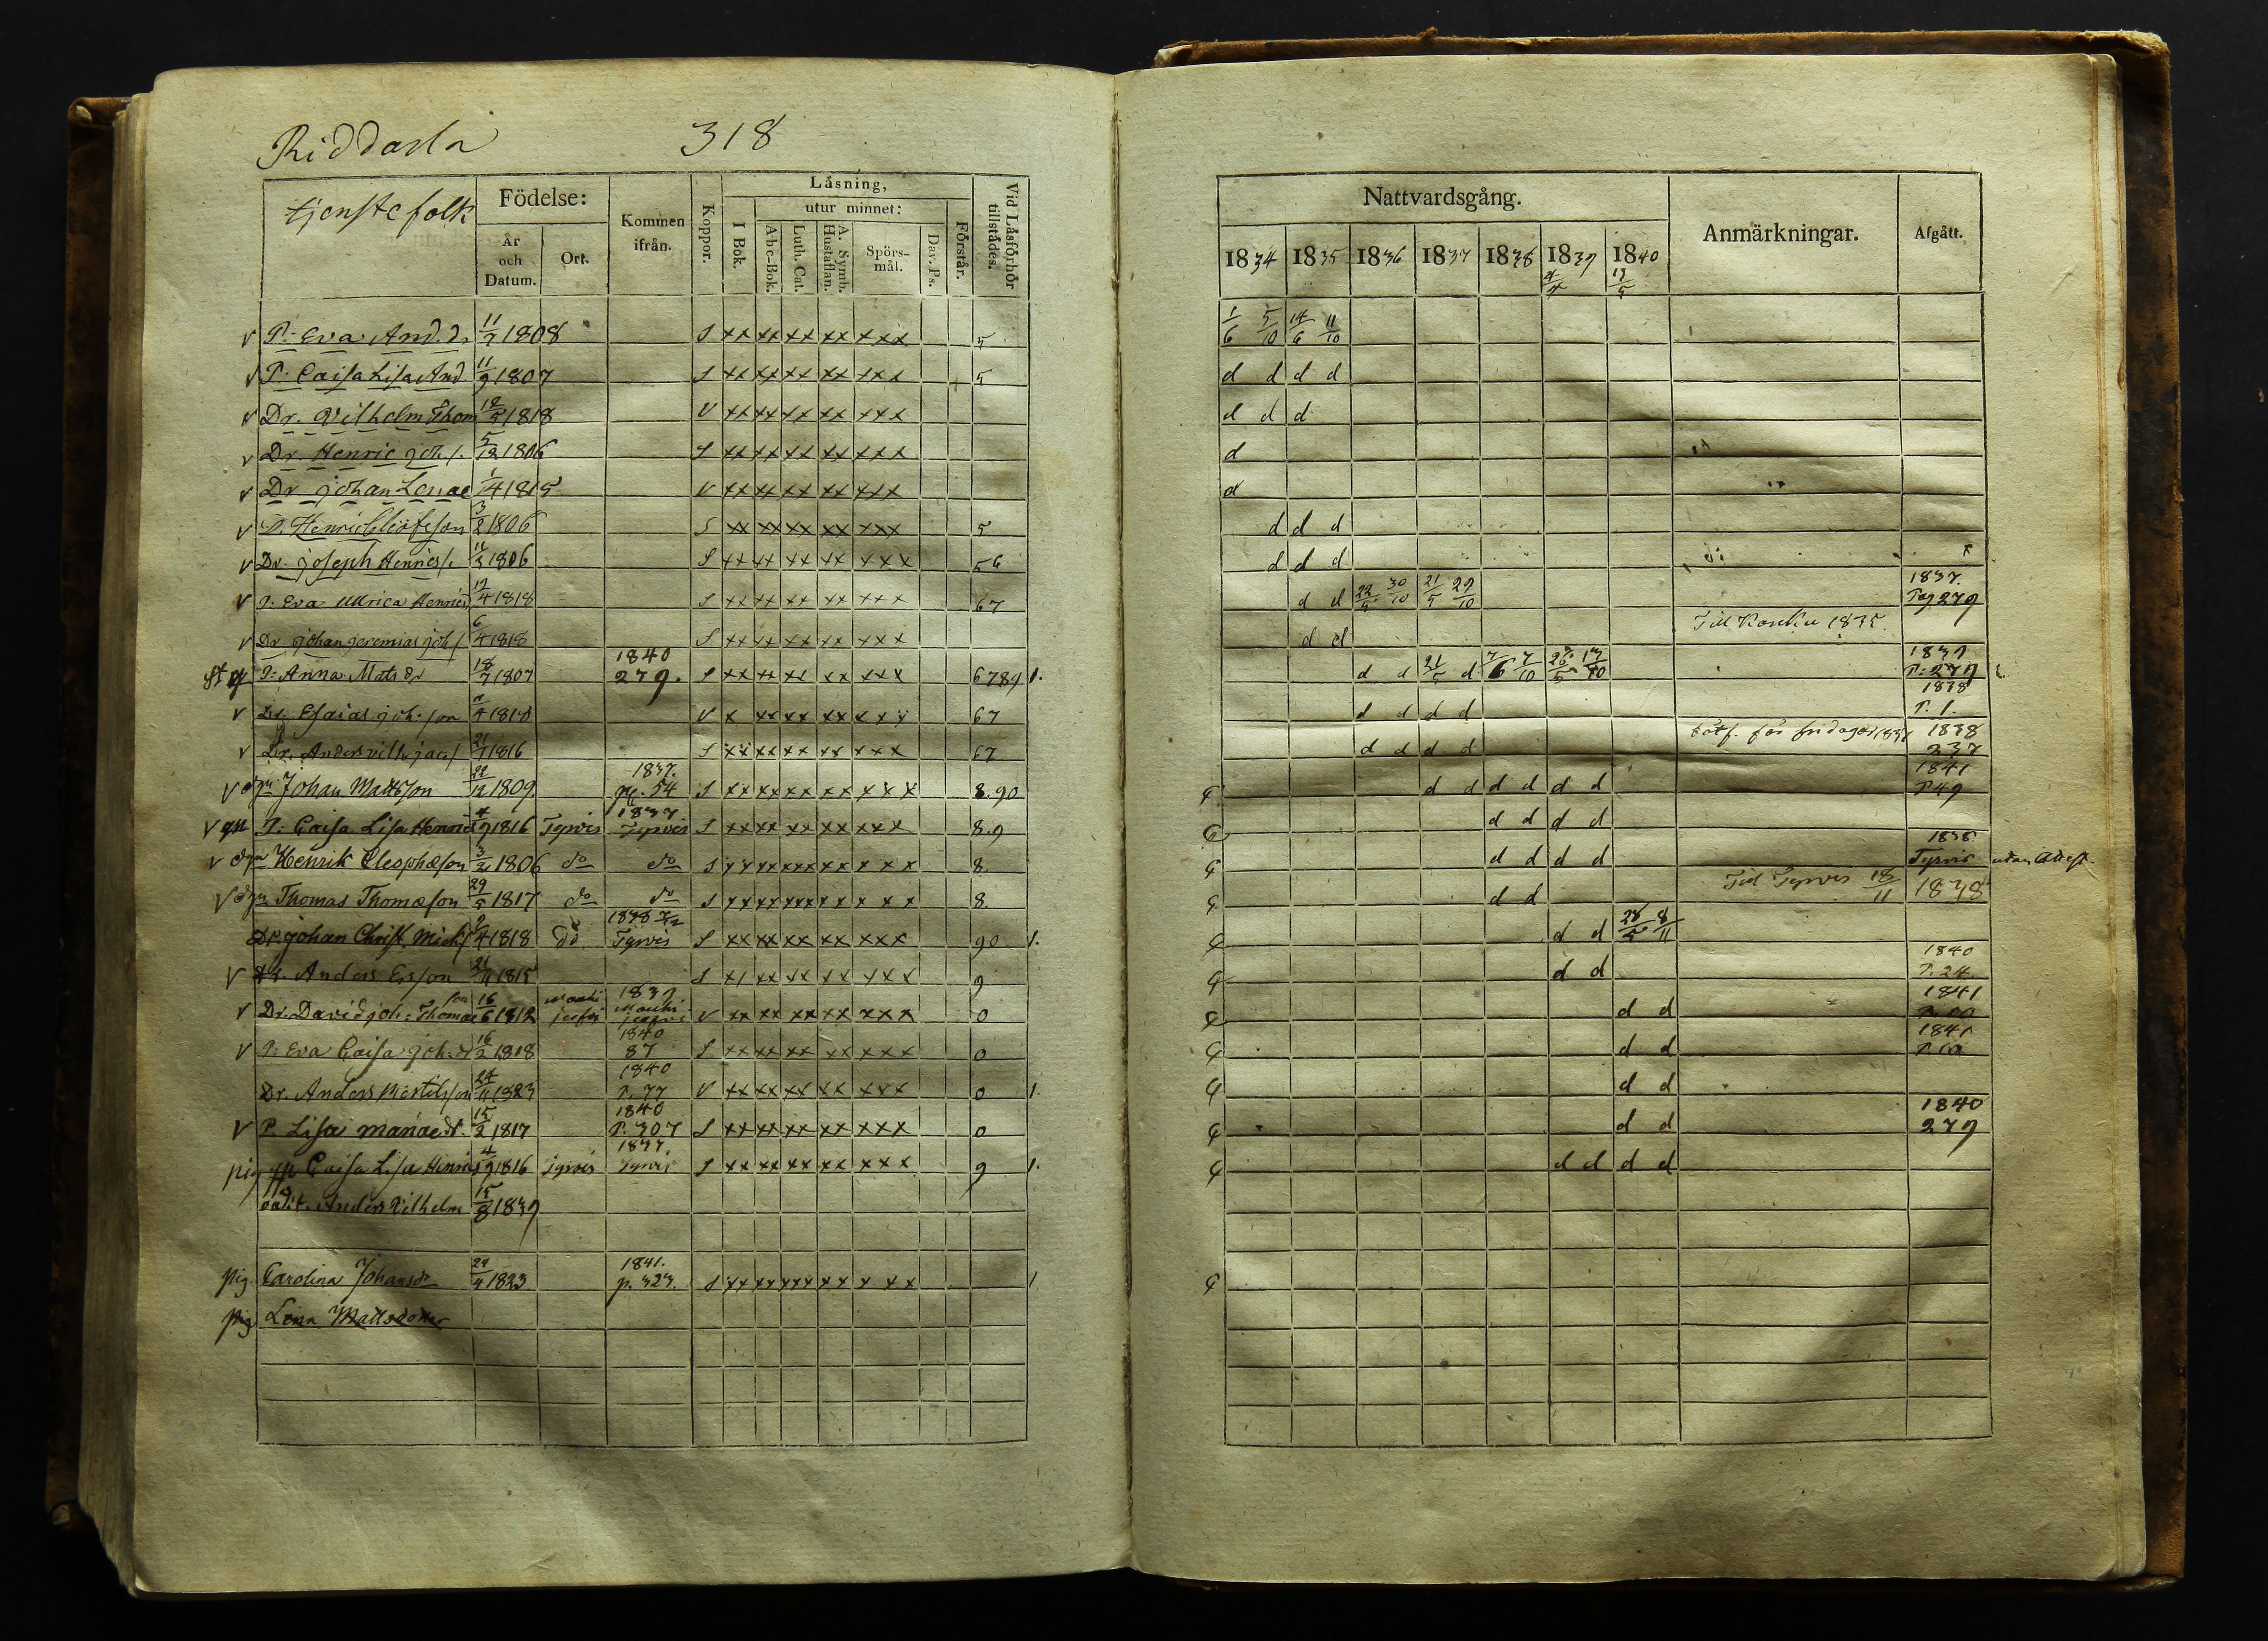 Riddasla 318
tjenstefolk Födelse: Kommen ifrån. Koppor. Läsning, Vid Läsförhör tillstädes.
År och Datum. Ort. I Bok. utur minnet: Förstår.
Abc-Bok. Luth. Cat. A. Symb. Hustaflan. Spörs-mål. Dav. Ps.
Nattvardsgång. Anmärkningar. Afgått.
1834 1835 1836 1837 1838 1839 1840
v P: Eva And. d. 11/7 1808 S xx xx xx xx xxx 5 1/6 5/10 14/6 11/10
v P: Caisa Lisa And 11/9 1807 S xx xx xx xx xxx 5 d d d d
v Dr. Vilhelm Thom 18/5 1818 V xx xx xx xx xxx d d d
v Dr. Henric joh s. 5/12 1806 S xx xx xx xx xxx d
v Dr johan Lenae 1/4 1815 V xx xx xx xx xxx d
v D. Henric 3/2 1806 S xx xx xx xx xxx 5 d d d
v Dr. joseph Henrics s. 11/3 1806 S xx xx xx xx xxx 56 d d d
v P. Eva Ulrica Henrics 12/4 1818 S xx xx xx xx xxx 67 d d 22/5 30/10 21/5 29/10 1837. Pag 279
v Dr johan jeremias joh s 6/4 1818 S xx xx xx xx xxx d d Till 1835.
P: Anna Mats dr 18/7 1807 1840 279. S xx xx xx xx xxx 6789 1. d d 21/5 d 7/6 7/10 26/5 13/10 1839 P: 279
v Dr Esaias joh: son 1818 V x xx xx xx xxx 67 d d d d 1838 P. 1.
v Dr. Anders vilh jac s 21/7 1816 S xx xx xx xx xxx 67 d d d d 1838 237
v Johan Mattsson 22/12 1809 1837. pg. 54 S xx xx xx xx xxx 8.90 d d d d d d 1841 P 49
v P: Caisa Lisa Henrics 4/9 1816 Tyrvis 1837 Tyrvis S xx xx xx xx xxx 8.9 d d d d
v Henrik Cleophæson 3/2 1806 do do S xx xx xx xx xxx 8. d d d d 1838 Tyrvis utan Attest.
v Thomas Thomæson 29/5 1817 do do S xx xx xx xx xxx 8. d d Till Tyrvis 18/11 1838
Dr. johan Christ. Mick s 9/4 1818 do 1838 Tyrvis S xx xx xx xx xxx 90 1. d d 28/5 8/11
v Dr. Anders Ersson 1815 S xx xx xx xx xxx 9 d d 1840 P. 24.
v Dr. David joh: Thomae son 16/6 1812 1839 V xx xx xx xx xxx 0 d d 1841
v P: Eva Caisa joh: d 16/2 1818 1840 87 S xx xx xx xx xxx 0 d d 1841
Dr. Anders Mårtilsson 24/11 1823 1840 P. 77 V xx xx xx xx xxx 0 1. d d
v P. Lisa manae d. 15/2 1817 1840 P. 307 S xx xx xx xx xxx 0 d d 1840 279
pig Caisa Lisa Henrics 4/9 1816 Tyrvis 1837. Tyrvis S xx xx xx xx xxx 9 1. d d d d
oäkt. Anders Vilhelm 15/8 1839
pig Carolina Johansdr 24/4 1823 1841. p. 323. S xx xx xx xx xxx 1
pig Lena Mattsdotter